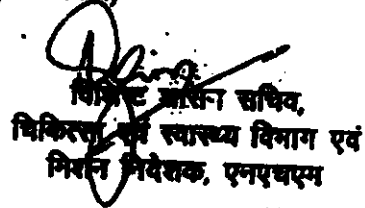 विशिष्ट शासन सचिव,
चिकित्सा एवं स्वास्थ्य विभाग एवं
मिशन निदेशक, एनएचएम